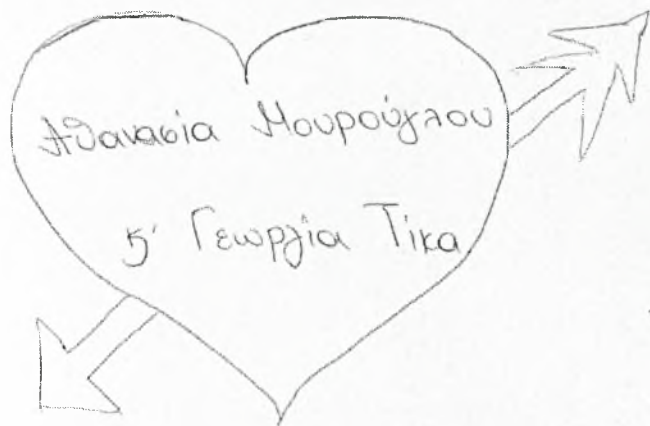 Αθανασία Μουρούγλου
ϗ' Γεωργία Τίκα